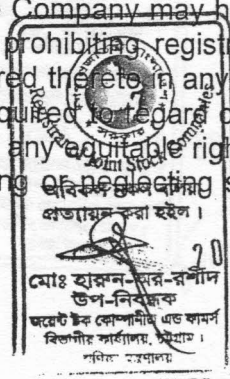 Company may h
prohibiting registr
red thereto in any
quired to regard o
any equitable righ
ng or neglecting s
Registrar of Joint Stock Companies
অবিকল
প্রত্যায়ন করা হইল।
মোঃ হারুন-অর-রশীদ
উপ-নিবন্ধক
জয়েন্ট ষ্টক কোম্পানীজ এন্ড ফার্মস
বিভাগীয় কার্যালয়, চট্টগ্রাম।